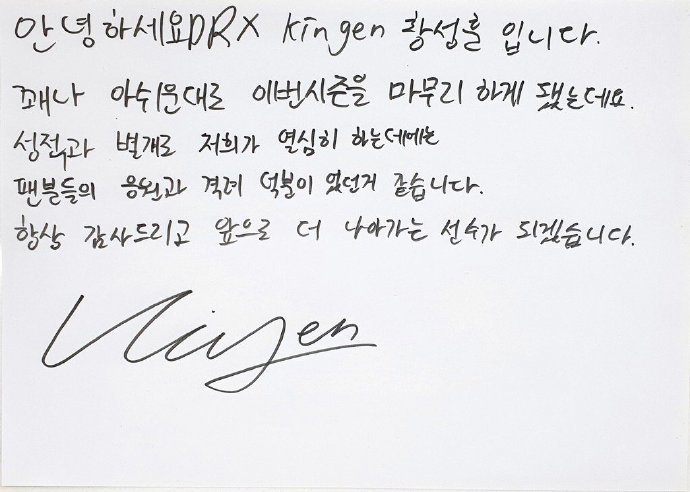 안녕하세요DRX kingen 황성훈 입니다.
꽤나 아쉬운대로 이번시즌을 마무리 하게 됐는데요.
성적과 별개로 저희가 열심히 하는데에는
팬분들의 응원과 격려 덕분이 있던거 같습니다.
항상 감사드리고 앞으로 더 나아가는 선수가 되겠습니다.
Kingen